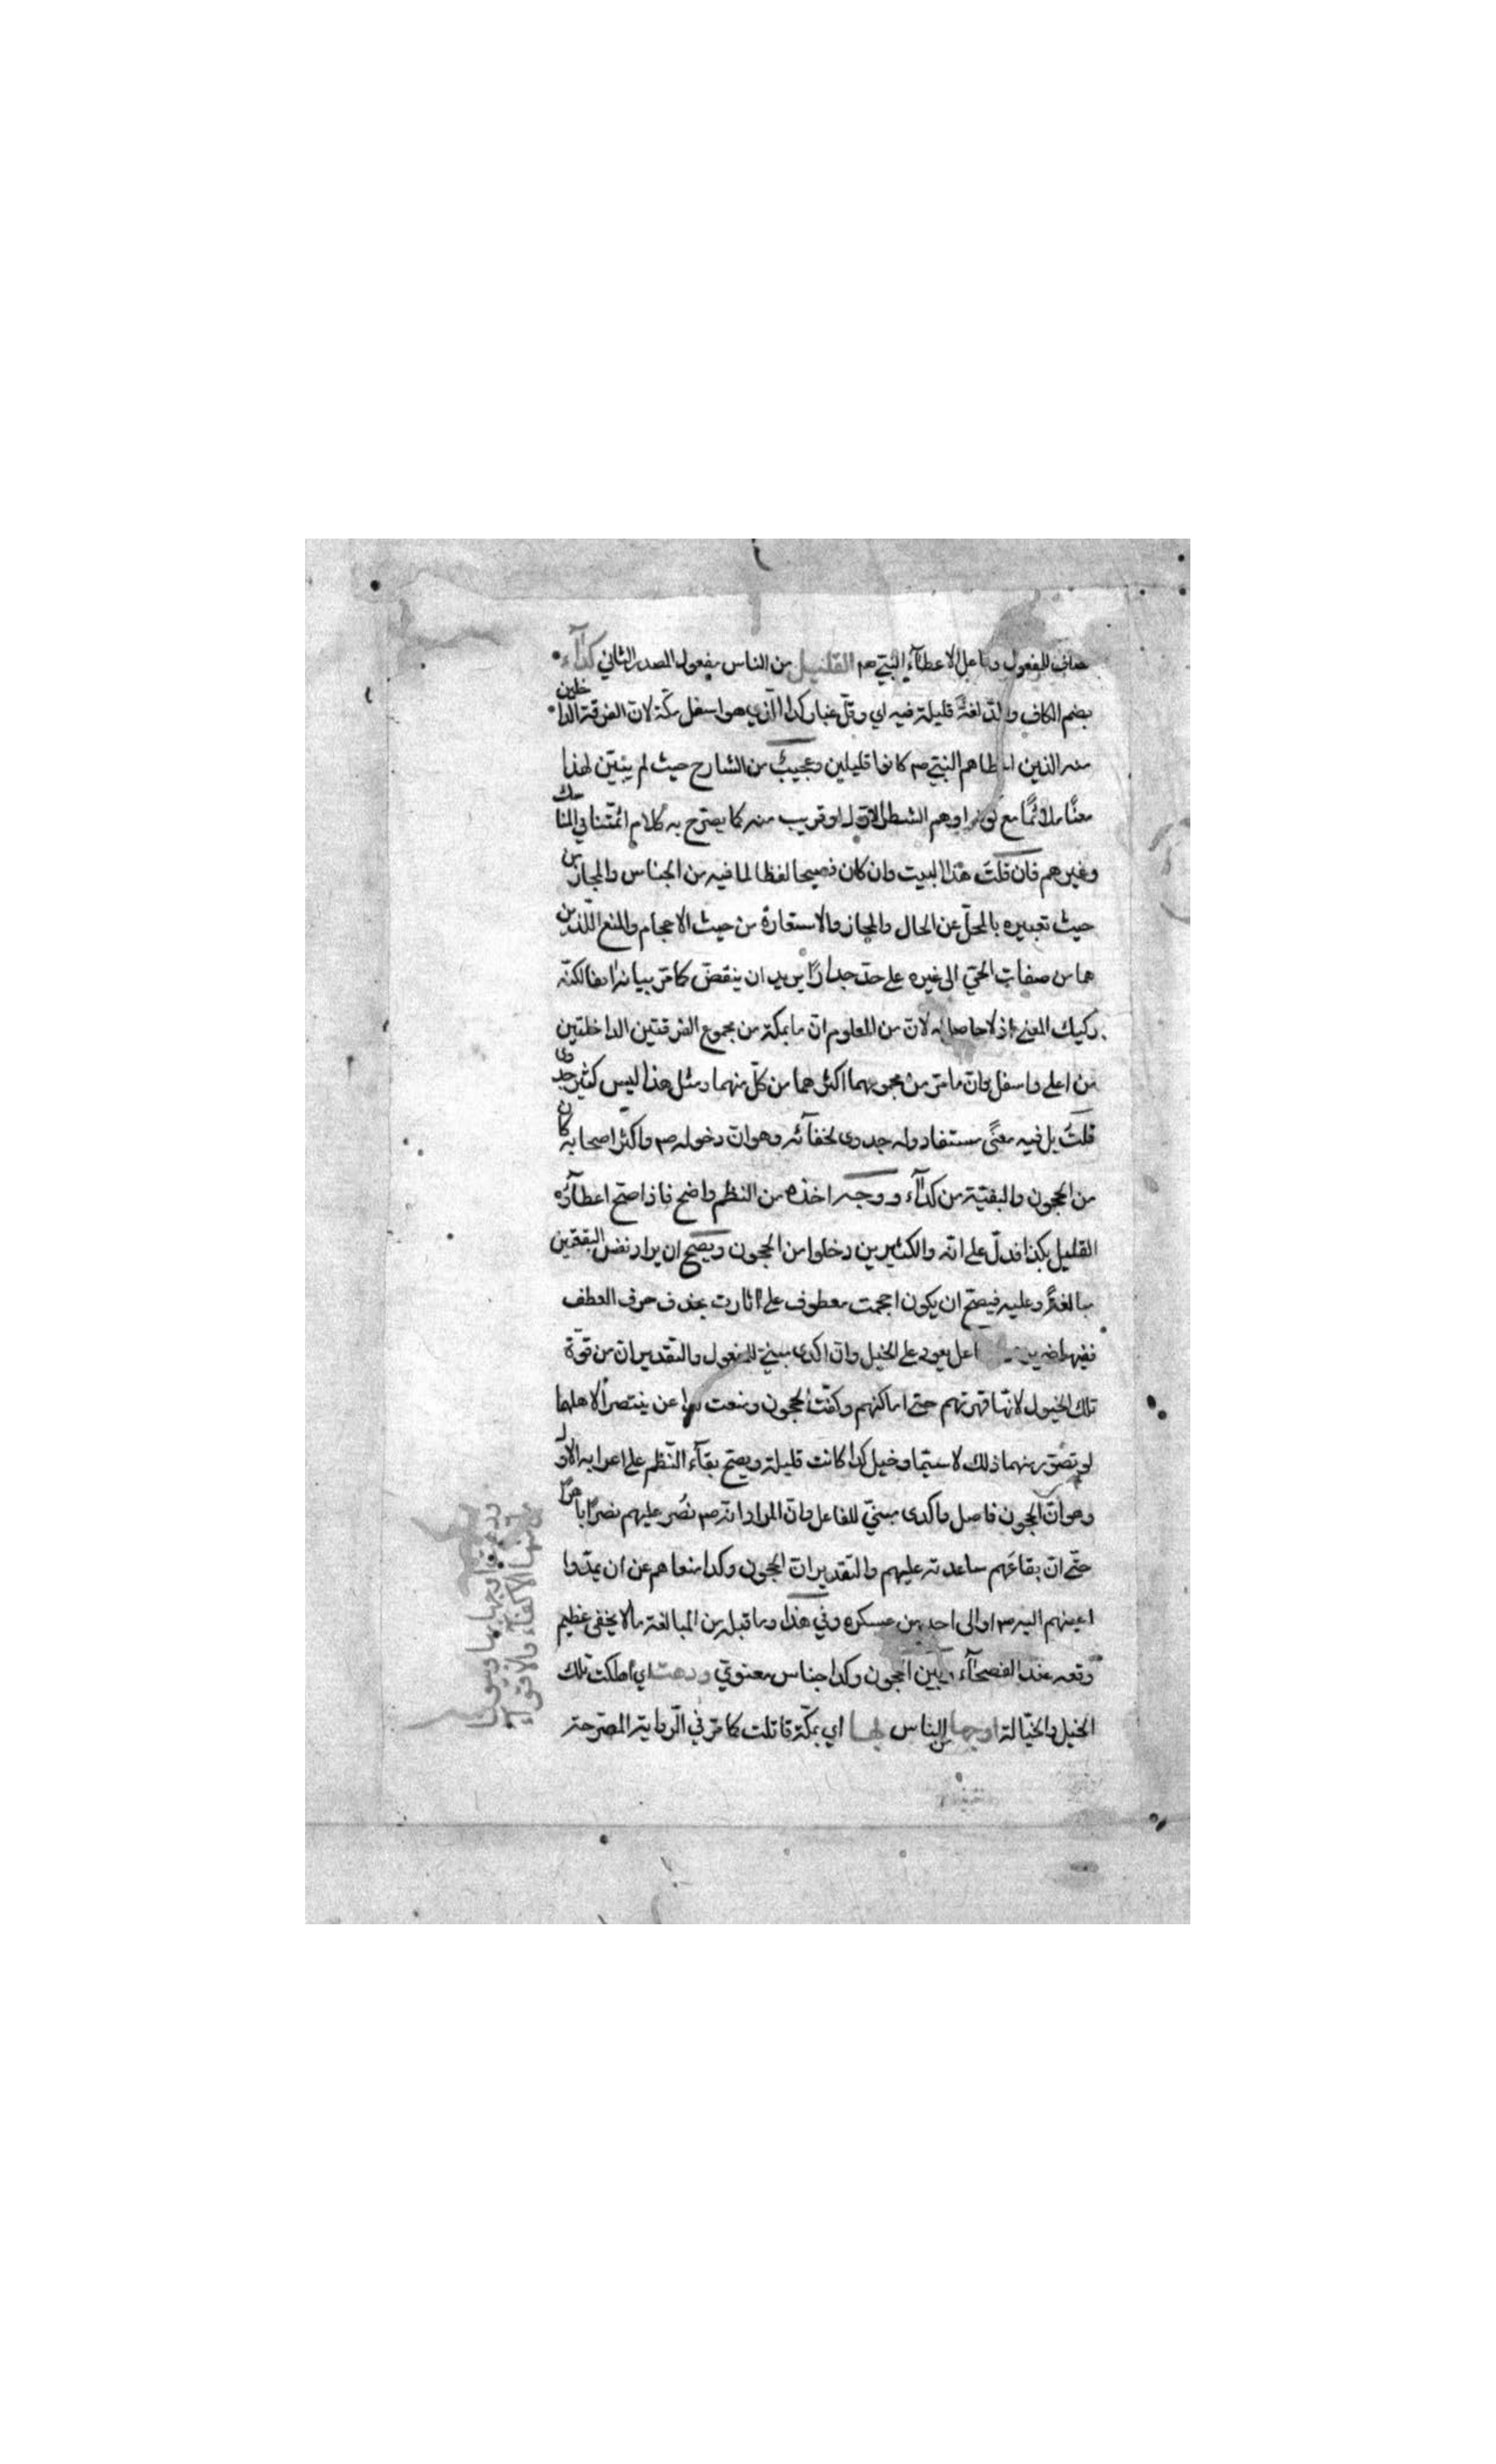 مضاف للمفعول وفاعل الاعطآء النبي صم القليل من الناس مفعول المصدر الثاني كدآء
بضم الكاف والمد لغة قليلة فيه اي وقل غبار كدا الذي هو اسفل مكة لان الفرقة الداخلين
منه الذين اعطاهم النبي صم كانوا قليلين وعجيب من الشارح حيث لم يبين لهذا
معنًا ملائمًا مع اوهم الشطر الاول او قريب منه كما يصرح به كلام ائمتنا في المناسك
وغيرهم فان قلت هذا البيت وان كان فصيحا لفظا لما فيه من الجناس والمجاز من
حيث تعبيره بالمحل عن الحال والمجاز والاستعارة من حيث الاحجام والمنع اللذين
هما من صفات الحي الى غيره على حد جدارًا يريد ان ينقض كما مر بيانه ايضا لكنه
ركيك المعنى اذ لا حاصل له لان من المعلوم ان ما بمكة من مجموع الفرقتين الداخلتين
من اعلى واسفل وان ما مر من مجموعهما اكثر هما من كل منهما ومثل هذا ليس كثير جدوى
قلت بل فيه معنًى مستفاد وله جدوى لخفآئه وهو ان دخوله صم واكثر اصحابه كان
من الحجون والبقية من كدآء ووجه اخذه من النظم واضح فاذا صح اعطآؤه
القليل بكذا فدل على انه والكثيرين دخلوا من الحجون ويصح ان يراد نفس البقعتين
مبالغة وعليه فيصح ان يكون احجمت معطوف على اثارت بحذف حرف العطف
ففيها ضمير فاعل يعود على الخيل وان اكدى مبني للمفعول والتقدير ان من قوة
تلك الخيول لانها قهرتهم حتى اماكنهم وكفت الحجون ومنعت كدا عن ينتصرا لاهلهما
لو تصور منهما ذلك لا سيما وخيل كدا كانت قليلة ويصح بقآء النظم على اعرابه الاول
وهو ان الحجون فاعل واكدى مبني للفاعل وان المراد انه صم نصر عليهم نصرًا باهرًا
حتى ان بقاعهم ساعدته عليهم والتقدير ان الحجون وكدا منعاهم عن ان يمدوا
اعينهم اليه صم او الى احد من عسكره وفي هذا وما قبله من المبالغة ما لا يخفى عظيم
وقعه عند الفصحآء وبين الحجون وكدا جناس معنوي ودهت اي اهلكت تلك
الخيل والخيالة اوجها من الناس بها اي بمكة قاتلت كما مر في الرواية المصرحة
ودهت اوجها بها وبيوتا
منها الاكفآء والاقوآء